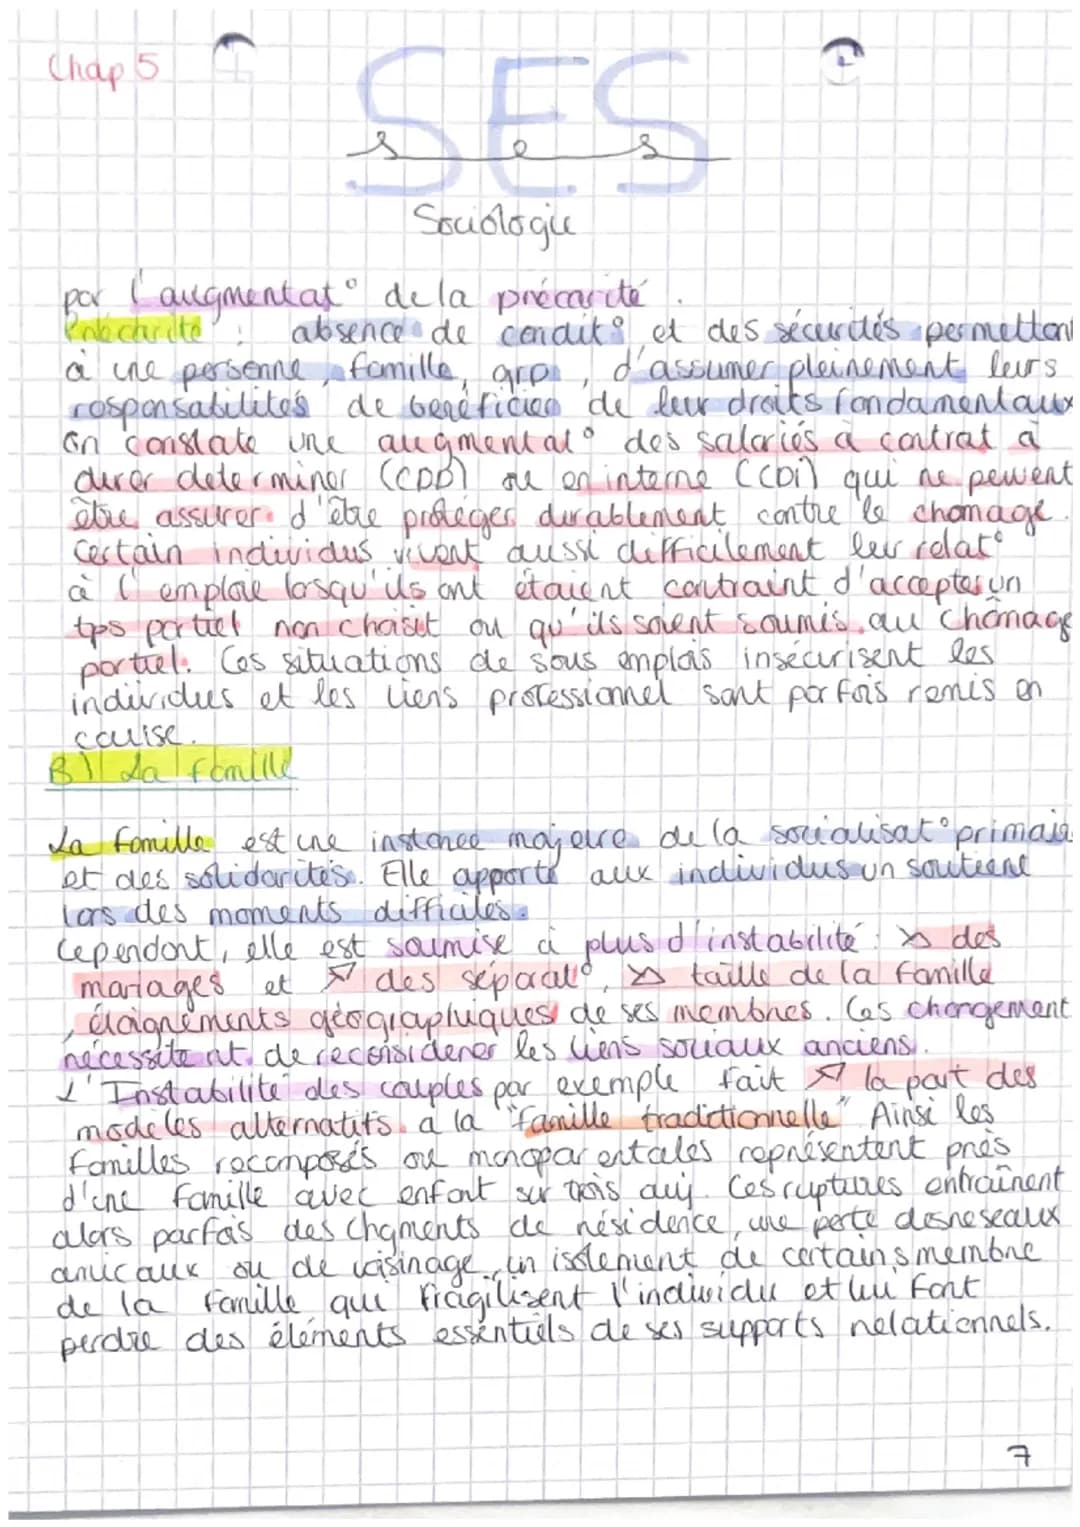 Chap 5
SES
s e s
Sociologie
par l'augmentat° de la précarité.
Précarité : absence de condit° et des sécurités permettant
à une personne, famille, grp, d'assumer pleinement leurs
responsabilités de bénéficier de leur droits fondamentaux
On constate une augmentat° des salariés à contrat à
durer determiner (CDD) ou en interne (CDi) qui ne peuvent
être assurer d'être protéger durablement contre le chomage.
Certain individus vivent aussi difficilement leur relat°
à l'emploie lorsqu'ils ont étaient contraint d'accepter un
tps partiel non choisit ou qu'ils soient soumis au chômage
partiel. Ces situations de sous emplois insécurisent les
individus et les liens professionnel sont parfois remis en
cause.
B) La famille
La famille est une instance majeure de la socialisat° primaire
et des solidarités. Elle apporte aux individus un soutient
lors des moments difficiles.
Cependant, elle est soumise à plus d'instabilité : ↘ des
mariages et ↗ des séparat°, ↘ taille de la famille
, éloignements géographiques de ses membres. Ces changement
nécessite nt de reconsiderer les liens sociaux anciens.
L'Instabilité des couples par exemple fait ↗ la part des
modèles alternatifs a la "famille traditionnelle" Ainsi les
familles recomposés ou monoparentales représentent près
d'une famille avec enfant sur trois auj. Ces ruptures entraînent
alors parfois des chgments de résidence, une perte des reseaux
amicaux ou de voisinage, un isolement de certains membre
de la famille qui fragilisent l'individu et lui font
perdre des éléments essentiels de ses supports relationnels.
7